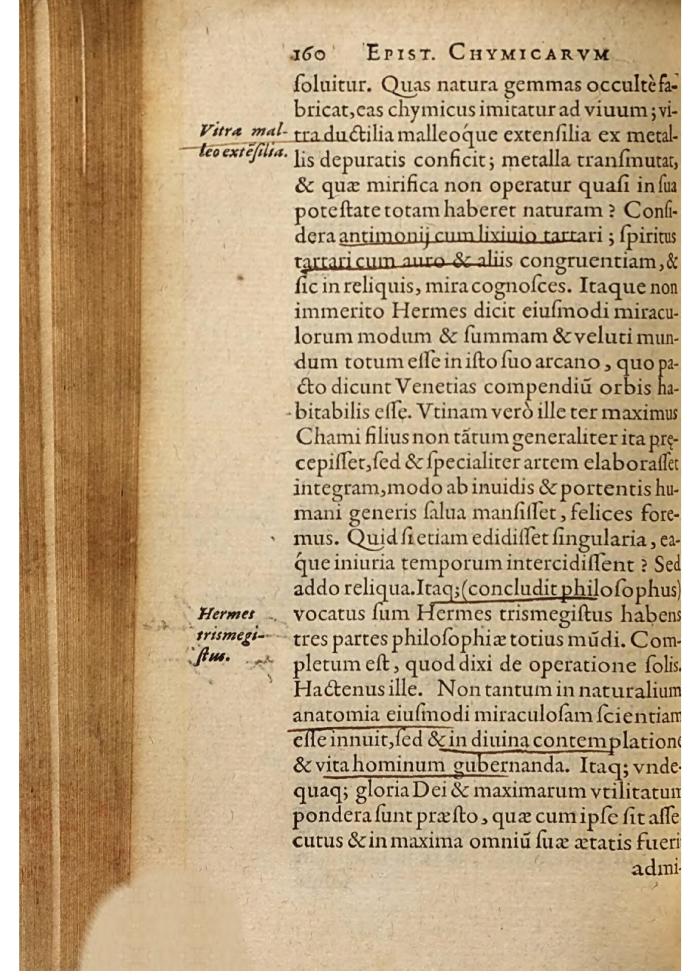 160 EPIST. CHYMICARVM
ſoluitur. Quas natura gemmas occultè fa-
bricat, eas chymicus imitatur ad viuum; vi-
Vitra mal-
leo extēſilia.
tra ductilia malleoque extenſilia ex metal-
lis depuratis conficit; metalla tranſmutat,
& quæ mirifica non operatur quaſi in ſua
poteſtate totam haberet naturam? Conſi-
dera antimonij cum lixiuio tartari; ſpiritus
tartari cum auro & aliis congruentiam, &
ſic in reliquis, mira cognoſces. Itaque non
immerito Hermes dicit eiuſmodi miracu-
lorum modum & ſummam & veluti mun-
dum totum eſſe in iſto ſuo arcano, quo pa-
cto dicunt Venetias compendiū orbis ha-
bitabilis eſſe. Vtinam verò ille ter maximus
Chami filius non tātum generaliter ita prę-
cepiſſet, ſed & ſpecialiter artem elaboraſſet
integram, modo ab inuidis & portentis hu-
mani generis ſalua manſiſſet, felices fore-
mus. Quid ſi etiam edidiſſet ſingularia, ea-
q́ue iniuria temporum intercidiſſent? Sed
addo reliqua. Itaq; (concludit philoſophus)
Hermes
trismegi-
ſtus.
vocatus ſum Hermes trismegiſtus habens
tres partes philoſophiæ totius mūdi. Com-
pletum eſt, quod dixi de operatione ſolis.
Hactenus ille. Non tantum in naturalium
anatomia eiuſmodi miraculoſam ſcientiam
eſſe innuit, ſed & in diuina contemplatione
& vita hominum gubernanda. Itaq; vnde-
quaq; gloria Dei & maximarum vtilitatum
pondera ſunt præſto, quæ cum ipſe ſit aſſe
cutus & in maxima omniū ſuæ ætatis fueri
admi-